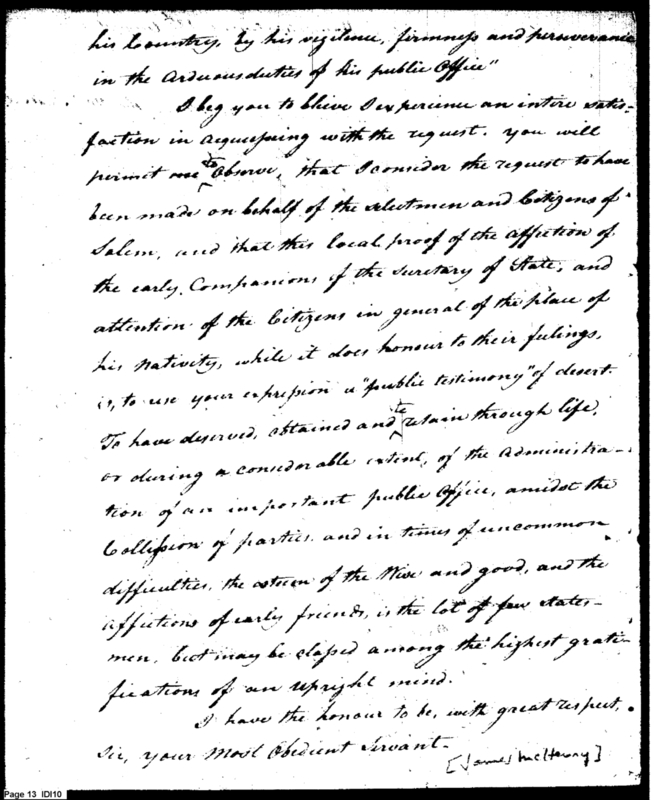 his Country, by his vigilence, firmness and perseverance
in the arduous duties of his public Office"
I beg you to blieve I experience an intire satis-
faction in acquiescing with the request. You will
permit me to Observe, that I consider the request to have
been made on behalf of the selectmen and Citizens of
Salem, and that this local proof of the affection of
the early Companions of the Secretary of State, and
attention of the Citizens in general of the place of
his nativity, while it does honour to their feelings,
is, to use your expression a "public testimony" of desert.
To have deserved, obtained and to retain through life,
or during a considerable extent, of the administra-
tion of an important public Office, amidst the
Collission of parties, and in times of uncommon
difficulties, the esteem of the Wise and good, and the
affections of early friends, is the lot of few states-
men, but may be classed among the highest grati-
fications of an upright mind.
I have the honour to be, with great respect,
Sir, your most Obedient Servant-
[James McHenry]
Page 13 IDI10